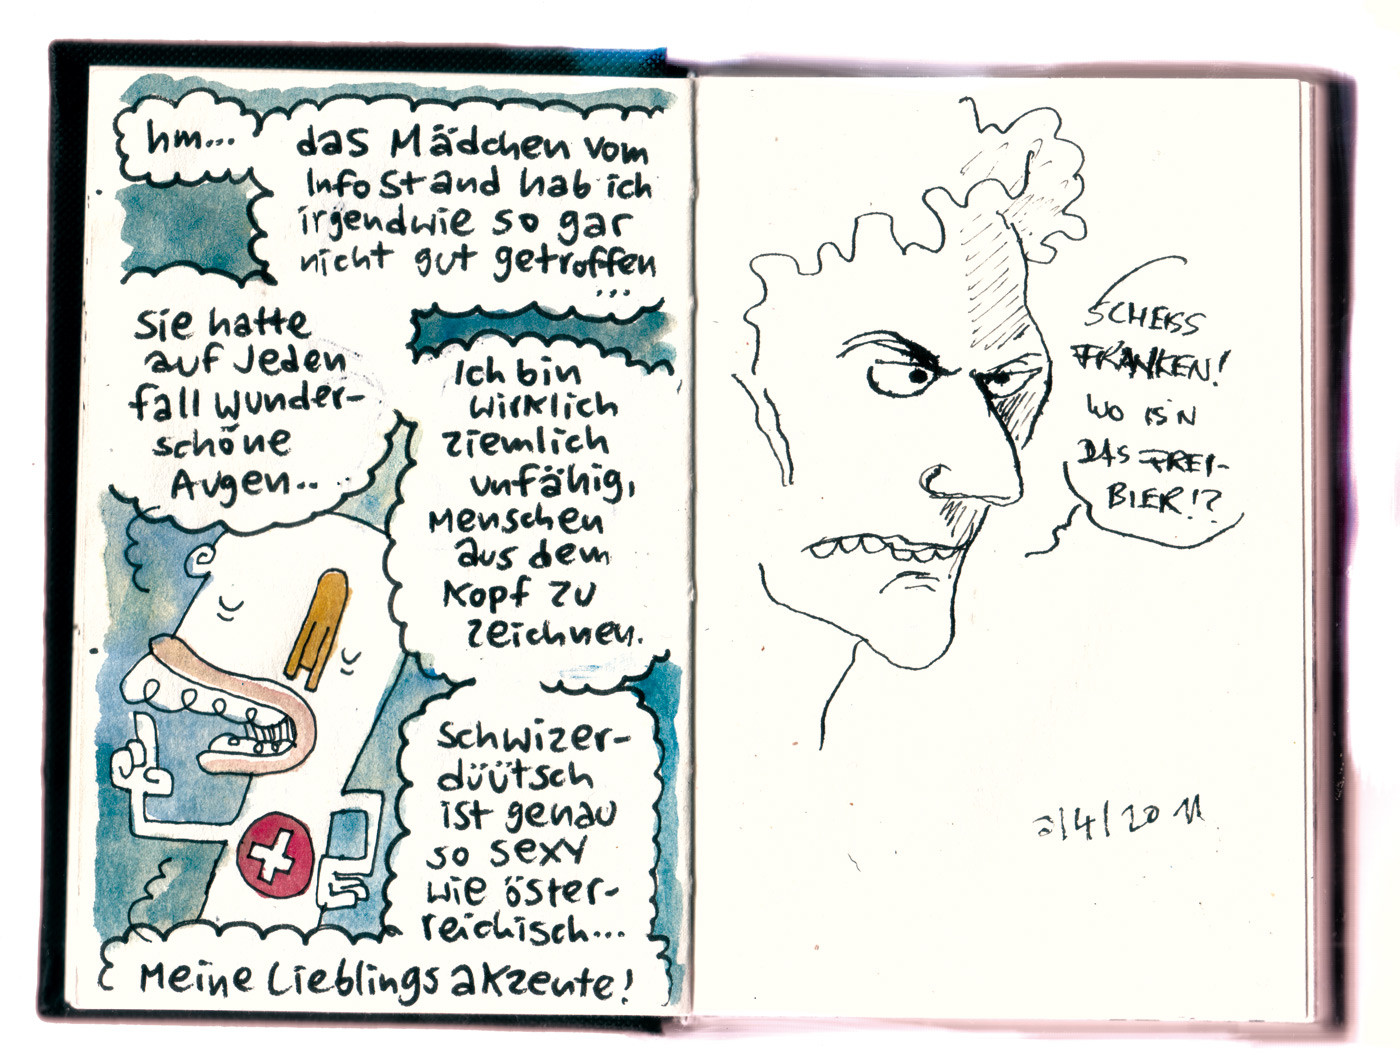 hm...
das Mädchen vom
Infostand hab ich
irgendwie so gar
nicht gut getroffen
...
Sie hatte
auf jeden
fall wunder-
schöne
Augen..
Ich bin
wirklich
ziemlich
unfähig,
Menschen
aus dem
Kopf zu
zeichnen.
Schwizer-
düütsch
ist genau
so sexy
wie öster-
reichisch...
Meine Lieblingsakzente!
SCHEISS
FRANKEN!
WO IS'N
DAS FREI-
BIER!?
2/4/2011